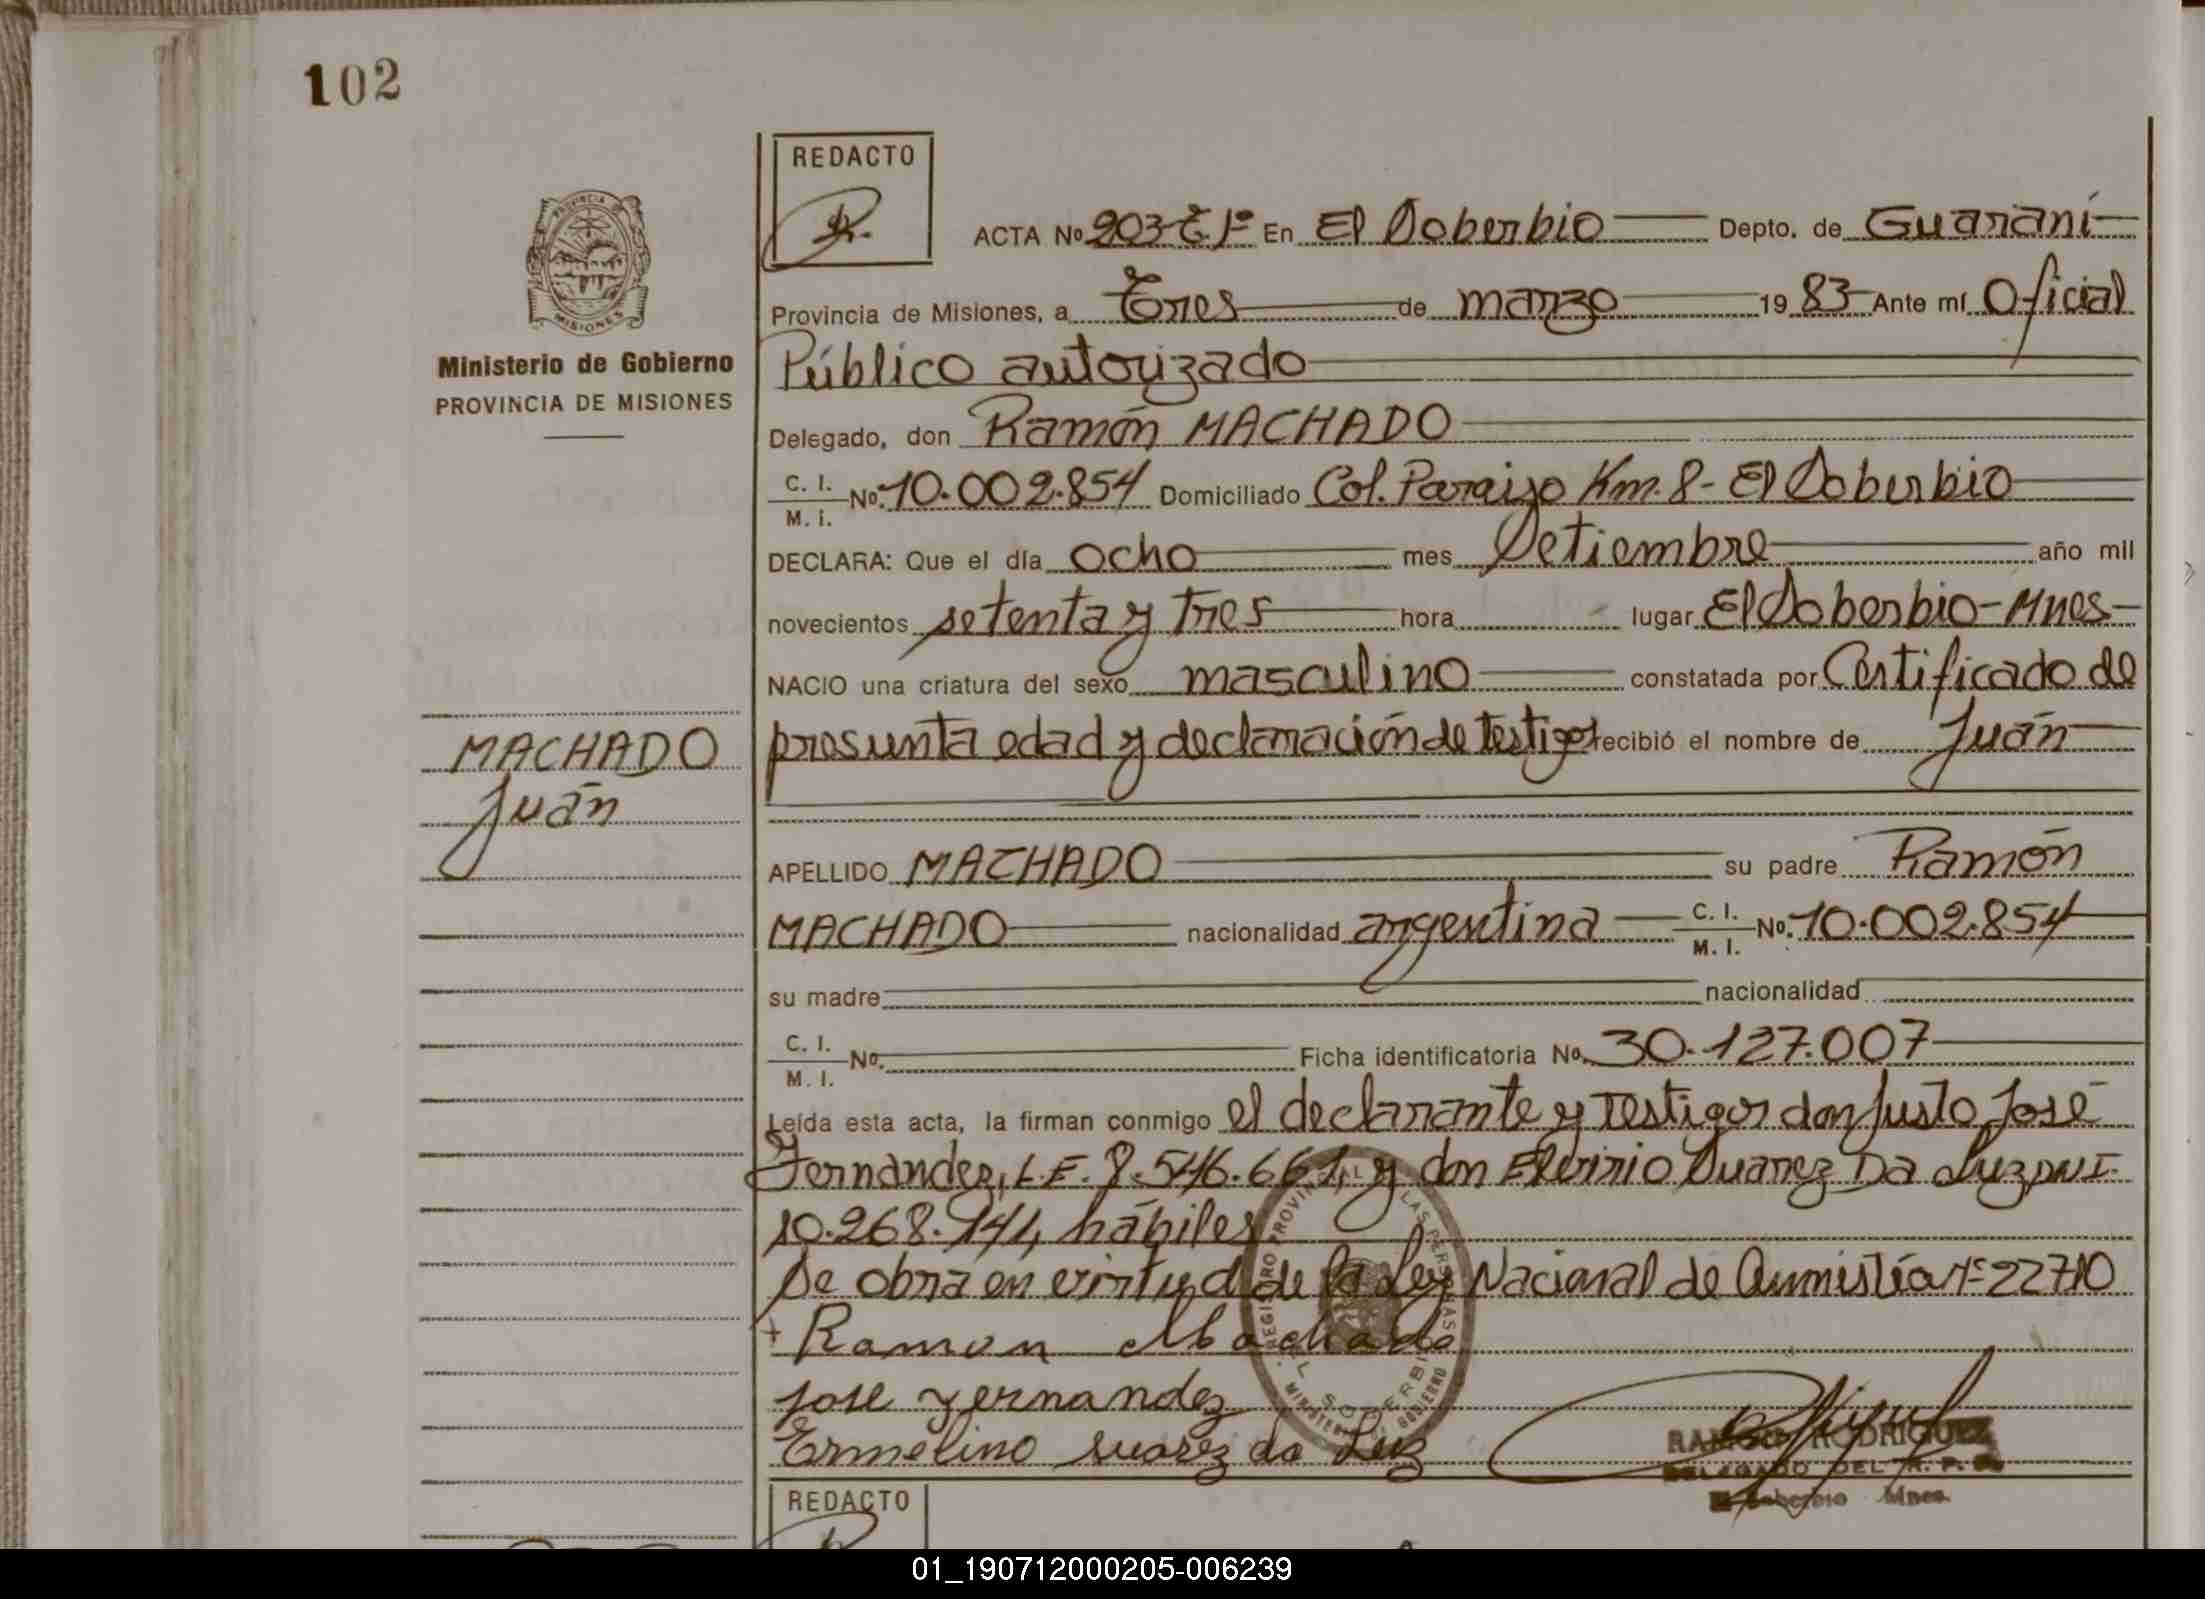 102
REDACTO
PROVINCIA DE
MISIONES
Ministerio de Gobierno
PROVINCIA DE MISIONES
ACTA Nº 203-T.1º En El Soberbio Depto. de Guaraní
Provincia de Misiones, a Tres de marzo 19 83 Ante mí Oficial
Público autorizado
Delegado, don Ramón MACHADO
C. I. M. I. Nº 10.002.854 Domiciliado Col. Paraiso Km. 8- El Soberbio
DECLARA: Que el día ocho mes Setiembre año mil
novecientos setenta y tres hora lugar El Soberbio-Mnes-
NACIO una criatura del sexo masculino constatada por Certificado de
presunta edad y declaración de testigos recibió el nombre de Juán
MACHADO
Juán
APELLIDO MACHADO su padre Ramón
MACHADO nacionalidad argentina C. I. M. I. Nº. 10.002.854
su madre nacionalidad
C. I. M. I. Nº. Ficha identificatoria Nº. 30.127.007
Leída esta acta, la firman conmigo el declarante y testigos don Justo José
Fernández, L.E. 8.546.661, y don Suarez Da Luz DNI.
10.268.141, hábiles
Se obra en virtud de la Ley Nacional de Amnistía Nº 22710
+ Ramon Machado
Jose Fernandez
Ermelino Suarez da Luz
REGISTRO PROVINCIAL LAS PERSONAS
EL SOBERBIO
MINISTERIO DE GOBIERNO
RAMON RODRIGUEZ
DELEGADO DEL R. P. P.
El Soberbio Mnes.
REDACTO
01_190712000205-006239